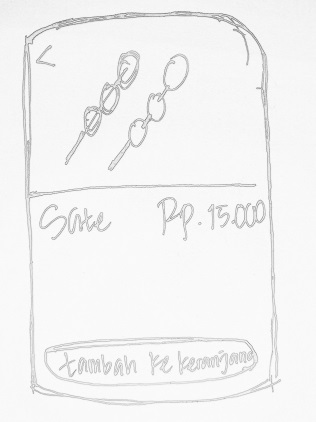 Sate Rp. 15.000
tambah ke keranjang